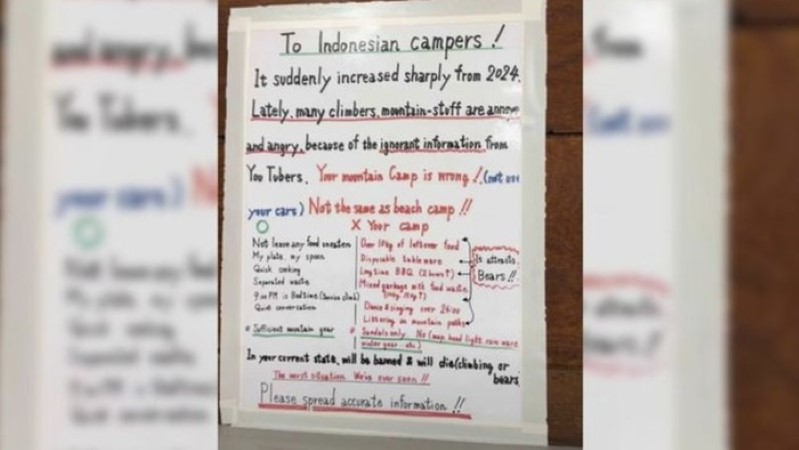 To Indonesian campers!
It suddenly increased sharply from 2024.
Lately, many climbers, mountain-stuff are annoye
and angry, because of the ignorant information from
You Tubers. Your mountain Camp is wrong!! (not use
your cars) Not the same as beach camp!!
○ X Your camp
Not leave any food uneaten
My plate, my spoon
Quick cooking
Separated waste
9:00 PM is Bedtime
Quiet conversation
* Sufficient mountain gear
Over 10kg of leftover food
Disposable tableware
Long time BBQ (2 hours↑)
Mixed garbage with food waste
Dance & singing over 24:00
Littering on mountain paths
* Sandals only. No (map head light rain ware
under gear etc)
Is attracts
Bears!!
In your current state, will be banned & will die (climbing or
bears
The worst situation We've ever seen!!
Please spread accurate information!!